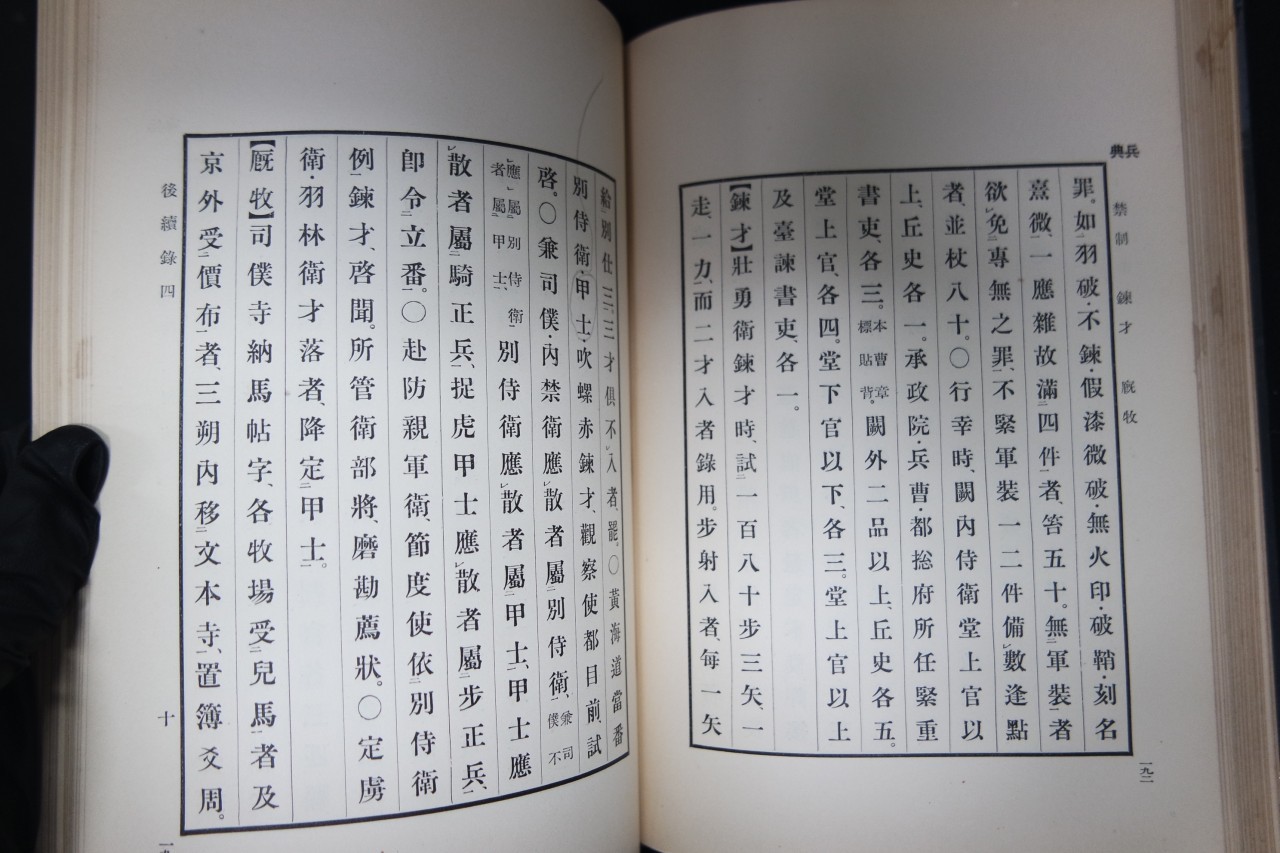 兵典
禁制 鍊才 廐牧
罪。如羽破·不鍊·假漆微破·無火印·破鞘·刻名
熹微、一應雜故滿四件者、笞五十。無軍裝者
欲免專無之罪、不緊軍裝一二件備數逢點
者、並杖八十。○行幸時、闕內侍衛堂上官以
上、丘史各一。承政院·兵曹·都捴府所任緊重
書吏、各三。本曹章標貼背。闕外二品以上、丘史各五。
堂上官、各四。堂下官以下、各三。堂上官以上
及臺諫書吏、各一。
【鍊才】壯勇衛鍊才時、試一百八十步三矢、一
走、一力、而二才入者錄用。步射入者、每一矢
一九二
給別仕三、三才俱不入者、罷。○黃海道當番
別侍衛·甲士·吹螺赤鍊才、觀察使都目前、試
啓。○兼司僕·內禁衛應散者屬別侍衛、兼司僕不
應屬別侍衛者屬甲士、別侍衛應散者屬甲士、甲士應
散者屬騎正兵、捉虎甲士應散者屬步正兵、
卽令立番。○赴防親軍衛、節度使依別侍衛
例鍊才、啓聞。所管衛部將、磨勘薦狀。○定虜
衛·羽林衛才落者、降定甲士。
【廐牧】司僕寺納馬帖字、各牧場受兒馬者及
京外受價布者、三朔內移文本寺、置簿爻周。
後續錄四
十